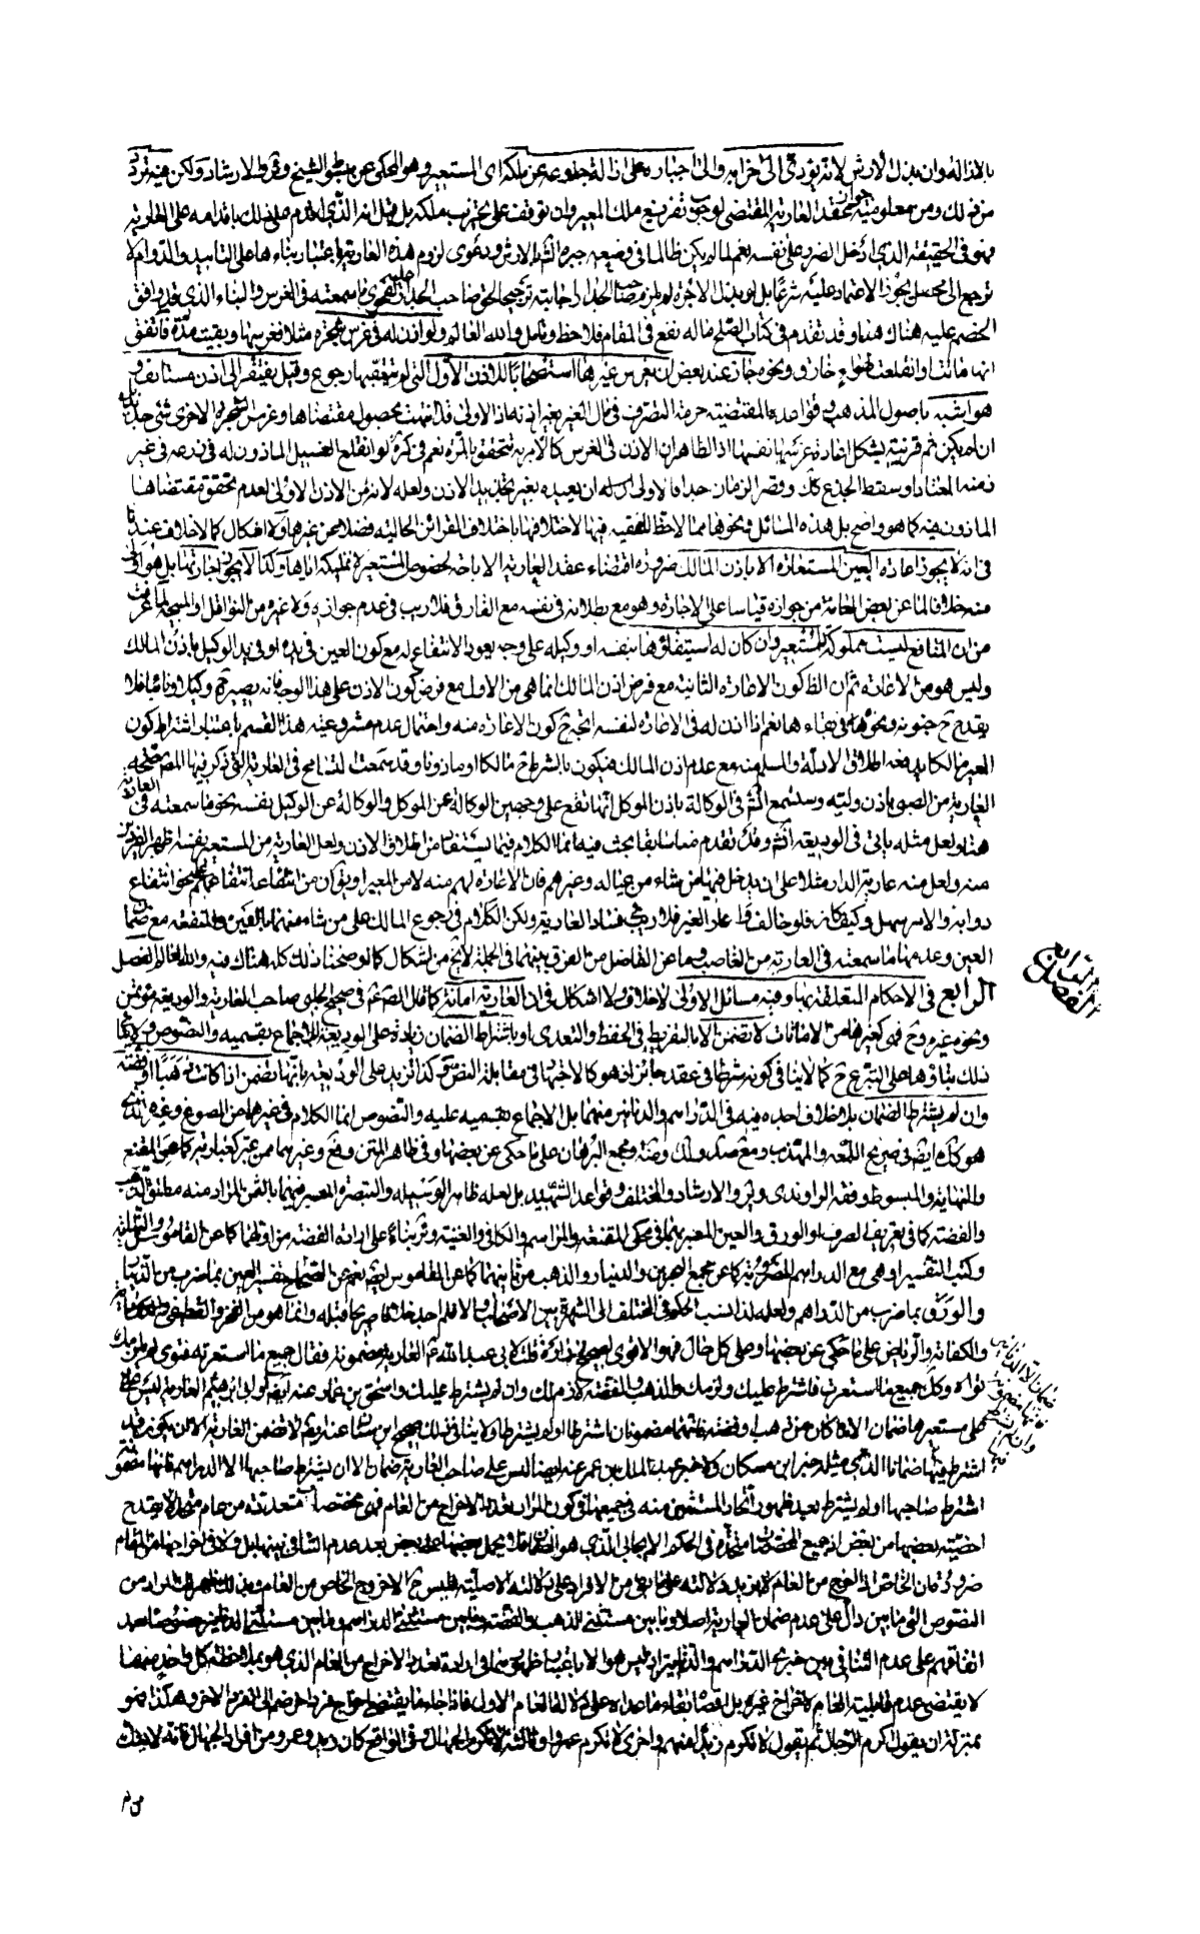 بالازالة وان بذل الارش لانه يؤدي الى خرابه والى اجباره على ازالة جذوعه عن ملكه اي المستعير وهو المحكي عن مبسوط الشيخ و والارشاد ولكن فيه تردد
من ذلك ومن معلومية جواز عقد العارية المقتضي لوجوب تفريغ ملك المعير وان توقف على تخريب ملكه بل قيل انه الذي اقدم على ذلك باقدامه على العارية
فهو في الحقيقة الذي ادخل الضرر على نفسه نعم لما لم يكن ظالما في وضعه جبره الشارع بالارش ودعوى لزوم هذه العارية باعتبار بناءها على التابيد والدوام لا
ترجع الى محصل يجوز الاعتماد عليه شرعا بل لو بذل الاجرة لم يلزم صاحب الجدار اجابته ترجيحا لحق صاحب الجدار الفحوى ما سمعته في الغرس والبناء الذي قد وافق
الخصم عليه هناك هذا وقد تقدم في كتاب الصلح ماله نفع في المقام فلاحظ وتامل والله العالم ولو اذن له في غرس شجرة مثلا فغرسها وبقيت مدة فاتفق
انها ماتت او انقلعت بهواء خارق ونحوه جاز عند بعض ان يغرس غيرها استصحابا للاذن الاول التي لم يتعقبها رجوع وقيل يفتقر الى اذن مستانف و
هو اشبه باصول المذهب وقواعده المقتضية حرمة التصرف في مال الغير بغير اذنه اذ الاولى قد انتهت بحصول مقتضاها وغرس الشجرة الاخرى شيء جديد
ان لم يكن ثم قرينة يشكل اعادة غرسها نفسها اذ الظاهر ان الاذن في الغرس كالامر به يتحقق بالمرة نعم في كرة لو انقلع الفسيل الماذون له في زرعه في غير
زمنه المعتاد او سقط الجذع كك وقصر الزمان جدا فالاولى ان له ان يعيده بغير تجديد الاذن ولعله لانه من الاذن الاولى لعدم تحقق مقتضاها
الماذون فيه كما هو واضح بل هذه المسائل ونحوها مما لا حظ للفقيه فيها لاختلافها باختلاف القرائن الحالية فضلا عن غيرها ولا اشكال كما لا خلاف عندنا
في انه لا يجوز اعارة العين المستعارة الا باذن المالك ضرورة اقتضاء عقد العارية الاباحة لخصوص المستعير لا تمليكه اياها وكذا لا يجوز اجارتها بل هو اولى
منه خلافا لما عن بعض العامة من جوازه قياسا على الاجارة وهو مع بطلانه في نفسه مع الفارق فلا ريب في عدم جوازه ولا غيره من النواقل والمبيحة لما عرفت
من ان المنافع ليست مملوكة للمستعير وان كان له استيفاؤها بنفسه او وكيله على وجه يعود الانتفاع له مع كون العين في يده او في يد الوكيل باذن المالك
وليس هو من الاعارة ثم ان الظ كون الاعارة الثانية مع فرض اذن المالك انما هي من الاول مع فرض كون الاذن على هذا الوجه فانه يصير ح وكيلا او نائبا فلا
يقدح ح جنونه ونحوها في بقاءها نعم اذا اذن له في الاعارة لنفسه اتجه ح كون الاعارة منه واحتمال عدم مشروعيته هذا القسم باعتبار اشتراط كون
المعير مالكا يدفعه اطلاق الادلة والمسلم منه مع عدم اذن المالك فيكون بالشرط ح مالكا او ماذونا وقد سمعت لتسامح في العارية التي ذكر فيها المص صحة
العارية من الصبي باذن وليه وستسمع الش في الوكالة باذن الموكل انها تقع على وجهين الوكالة عن الموكل والوكالة عن الوكيل بنفسه بنحو ما سمعته في العارية
هنا ولعل مثله ياتي في الوديعة انش وقد تقدم منا سابقا بحث فيه انما الكلام فيما يستفاد من اطلاق الاذن ولعل العارية من المستعير نفسه اظهر الفردين
منه ولعل منه عارية الدار مثلا على ان يدخل فيها من شاء من عياله وغيرهم فان الاعارة لهم منه لا من المعير او يقال ان من انتفاعه انتفاعهم على نحو انتفاع
دوابه والامر سهل وكيف كان فلو خالف واعار الغير فلا ريب في فساد العارية ولكن الكلام في رجوع المالك على من شاء منهما بالعين والمنفعة مع ضمان
العين وعدمها ما سمعته في العارية من الغاصب وما عن الفاضل من الفرق بينهما في الجملة لا يخ من اشكال كما اوضحنا ذلك كله هناك فيه والله العالم الفصل
الرابع في الاحكام المتعلقة بها وفيه مسائل الاولى لا خلاف ولا اشكال في ان العارية امانة كما قال الص ع في صحيح الحلبي صاحب العارية والوديعة مؤتمن
ونحوه غيره وح فهي كغيرها من الامانات لا تضمن الا بالتفريط في الحفظ والتعدي او باشتراط الضمان زيادة على الوديعة للاجماع بقسميه والنصوص ولا ينافي
ذلك بناؤها على التبرع ح كما لا ينافي كونه شرطا في عقد جائز اذ هو كالاجتهاد في مقابلة النص و كذا تزيد على الوديعة بانها تضمن اذا كانت ذهبا او فضة
وان لم يشترط الضمان بلا خلاف اجده فيه في الدراهم والدنانير منهما بل الاجماع بقسميه عليه والنصوص انما الكلام في غيرها من المصوغ وغيره
هو كك ايضا في صريح اللمعة والمهذب و مع صد ولك وضة ومجمع البرهان على ما حكي عن بعضها وفي ظاهر المتن وفع وغيرهما ممن عبر كعبارته كما هي المقنع
والنهاية والمبسوط وفقه الراوندي وئر والارشاد والمختلف وقواعد الشهيد بل لعله ظاهر الوسيلة والتبصرة المعبر فيهما بالثمن المراد منه مطلق الذهب
والفضة كما في تعريف الصرف او الورق والعين المعبر بهما في محكي المقنعة والمراسم والكافي والغنية وئر بناء على ارادة الفضة من اولهما كما عن القاموس والنهاية
وكتب التفسير او هي مع الدراهم المضروبة كما عن مجمع البحرين والدينار والذهب من ثانيهما كما عن القاموس ايض نعم عن الصحاح تفسير العين بما ضرب من الدنانير
والورق بما ضرب من الدراهم ولعله لذا نسب الحكم في المختلف الى الشهرة بين الاصحاب
والكفاية والرياض على ما حكي عن بعضها وعلى كل حال فهو الاقوى لصحيح زرارة قلت لابي عبد الله ع العارية مضمونة فقال جميع ما استعرته فتوى فلا يلزمك
تواه وكل جميع ما استعرت فاشترط عليك ولزمك والذهب والفضة لازم لك وان لم يشترط عليك واسحق بن عمار عنه ايضا او ابي ابراهيم العارية ليس على
على مستعيرها ضمان الا ما كان من ذهب او فضة فانهما مضمونان اشترطا او لم يشترطا ولا ينافي ذلك صحيح ابن سنان عنه ايض لا تضمن العارية الا ان يكون قد
اشترط فيها ضمانا الذي مثله خبر ابن مسكان ولا خبر عبد الملك بن عمر عنه ايضا ليس على صاحب العارية ضمان الا ان يشترط صاحبها الا الدراهم فانها مضمونة
اشترط صاحبها او لم يشترط بعد ظهور اتحاد المستثنى منه في جميعها وكون المراد تعدد الاخراج من العام فهي مخصصات متعددة من عام متحد لا يقدح
اخصية بعضها من بعض اذ جميع المخصصات متحدة في الحكم الايجابي الذي هو الضمان فلا يحمل بعضها على بعض بعد عدم التنافي بينها بل ولا في اخراجها من العام
ضرورة ان الخاص اذا اخرج من العام لا يزيد دلالته على ما بقي من الافراد على دلالته الاصلية فليس ح الا خروج الخاص من العام وبذلك ظهر لك المراد من
النصوص التي ما بين دال على عدم ضمان العارية اصلا وما بين مستثني الذهب والفضة وما بين مستثني الدراهم وما بين مستثني الدنانير خصوصا بعد
اتفاقهم على عدم التنافي بين خبري الدراهم والدنانير اذ ليس هو الا باعتبار ظهورهما في ارادة تعدد الاخراج من العام الذي هو بملاحظة كل واحد منهما
لا يقتضي عدم قابلية العام لاخراج غيره بل اقصاه بقاء ما عداه على دلالة العام الاول فاذا جاء ما يقتضي اخراج فرد اخر ضم الى الفرد الاخر وهكذا فهو
بمنزلة ان يقول اكرم الرجال ثم يقول لا تكرم زيدا منهم واخرى لا تكرم عمروا وثالثة لا تكرم الجهال وفي الواقع كان زيد وعمرو من افراد الجهال فانه لا يشك
الفصل الرابع
ضمان الا الدنانير
فانها مضمونة
وان لم يشترط